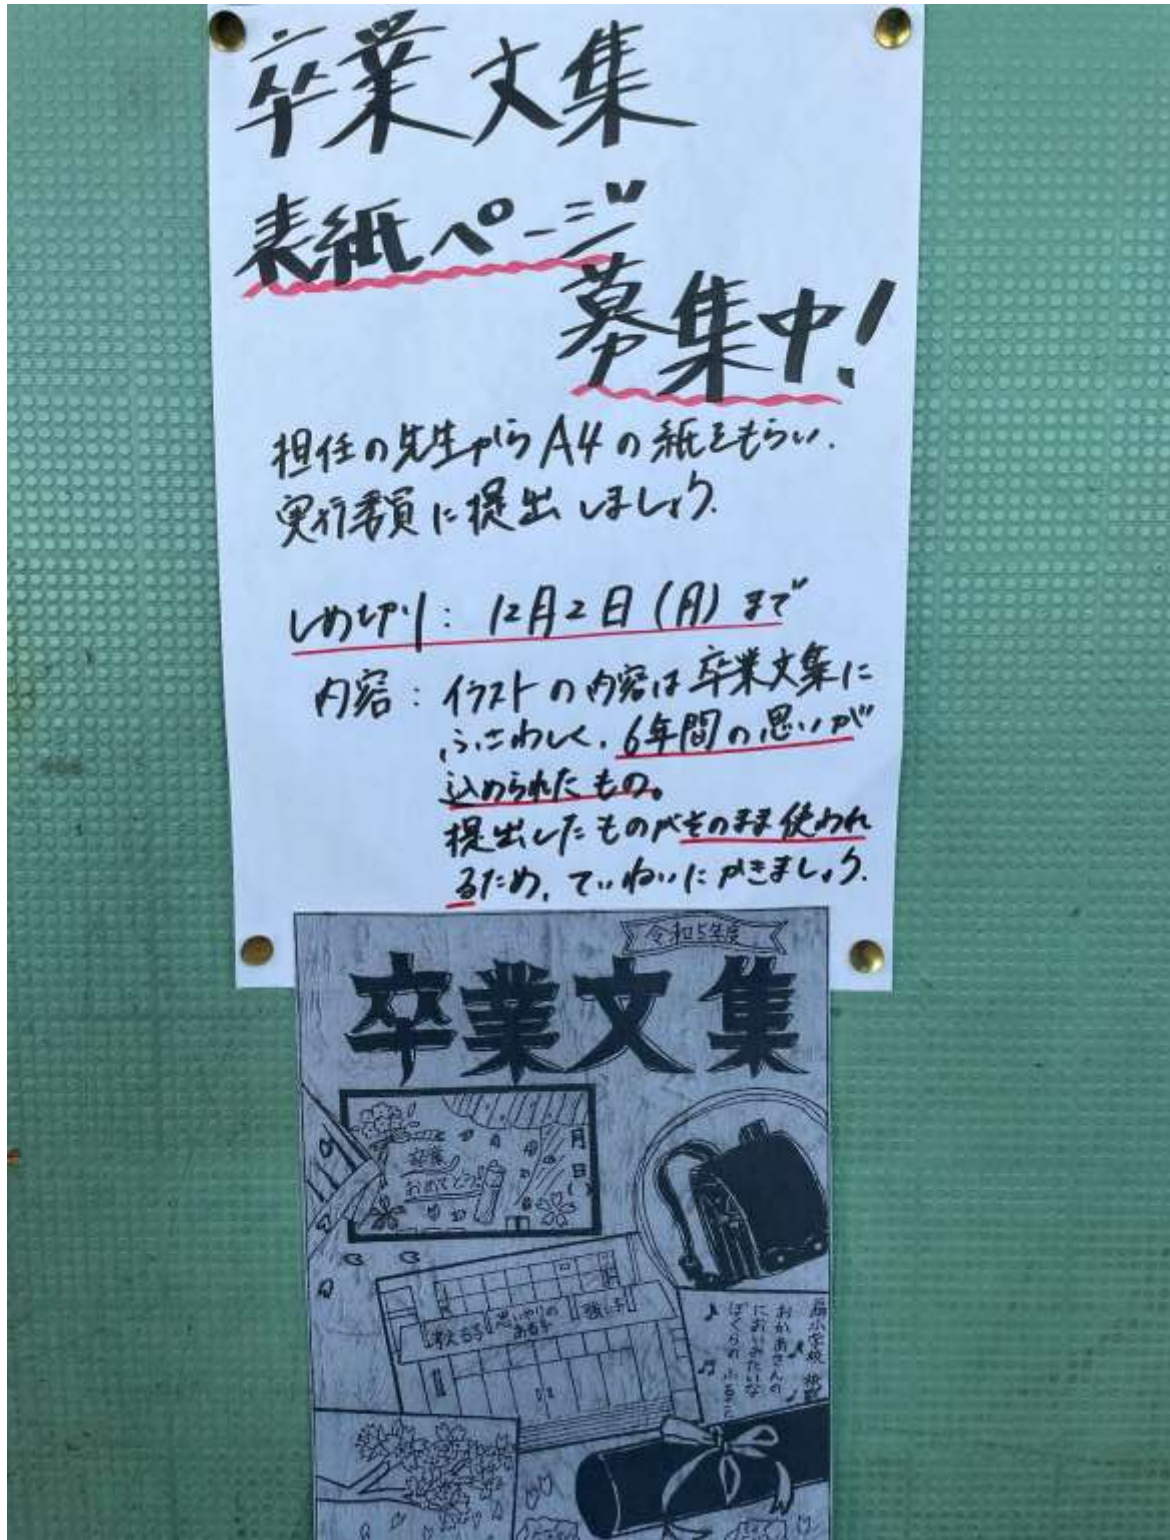 卒業文集
表紙ページ
募集中!
担任の先生からA4の紙をもらい、
実行委員に提出しましょう。
しめ切り: 12月2日(月)まで
内容: イラストの内容は卒業文集に
ふさわしく、6年間の思いが
込められたもの。
提出したものがそのまま使われ
るため、ていねいにかきましょう。
令和5年度
卒業文集
卒業
おめでとう
月
日
考える子
思いやりの
ある子
強い子
小学校
おかあさんの
においみたいな
ぼくらの